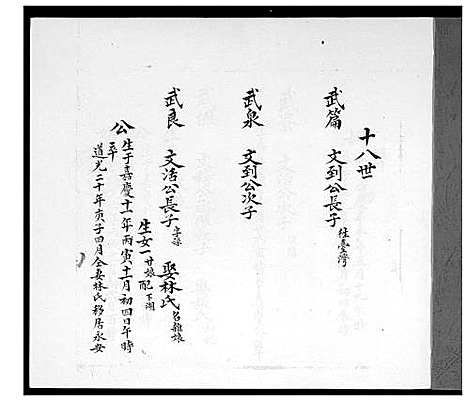 十八世
武篇 文到公長子 往臺灣
武泉 文到公次子
武良 文活公長子 字 娶林氏 名雜娘
生女一 廿娘配下湖
公生于嘉慶十一年丙寅十一月初四日午時
卒
道光二十年庚子四月仝妻林氏移居永安